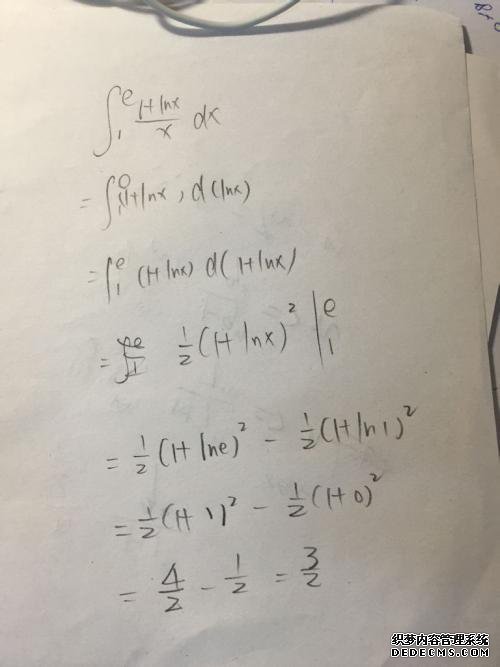 ∫₁ᵉ (1+lnx)/x dx
= ∫₁ᵉ (1+lnx) d(lnx)
= ∫₁ᵉ (1+lnx) d(1+lnx)
= 1/2 (1+lnx)² |₁ᵉ
= 1/2 (1+lne)² - 1/2 (1+ln1)²
= 1/2 (1+1)² - 1/2 (1+0)²
= 4/2 - 1/2 = 3/2
织梦内容管理系统
DEDECMS.COM